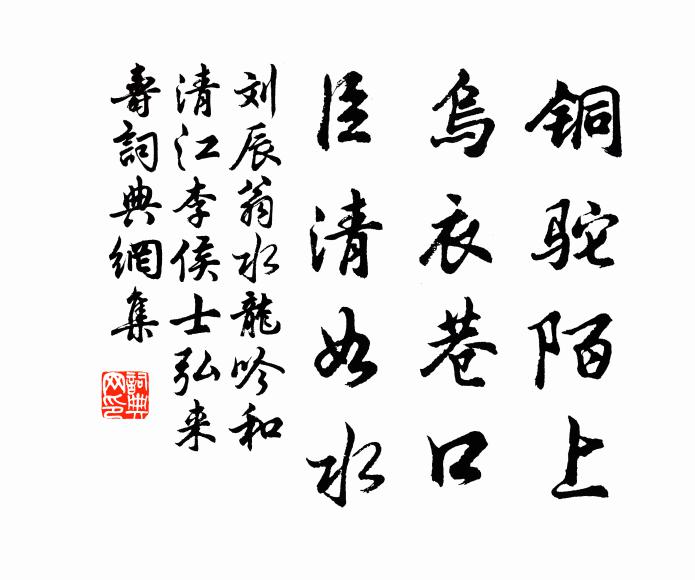 铜驼陌上
乌衣巷口
臣清如水
刘辰翁水龍吟和
清江李侯士弘来
壽詞典網集
詞典网印